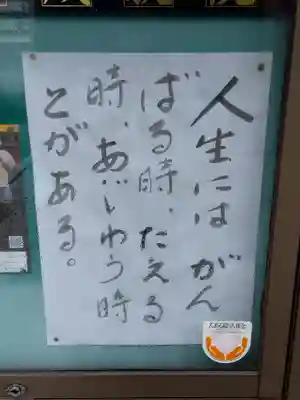 人生には がん
ばる時、たえる
時、あじわう時
とがある。